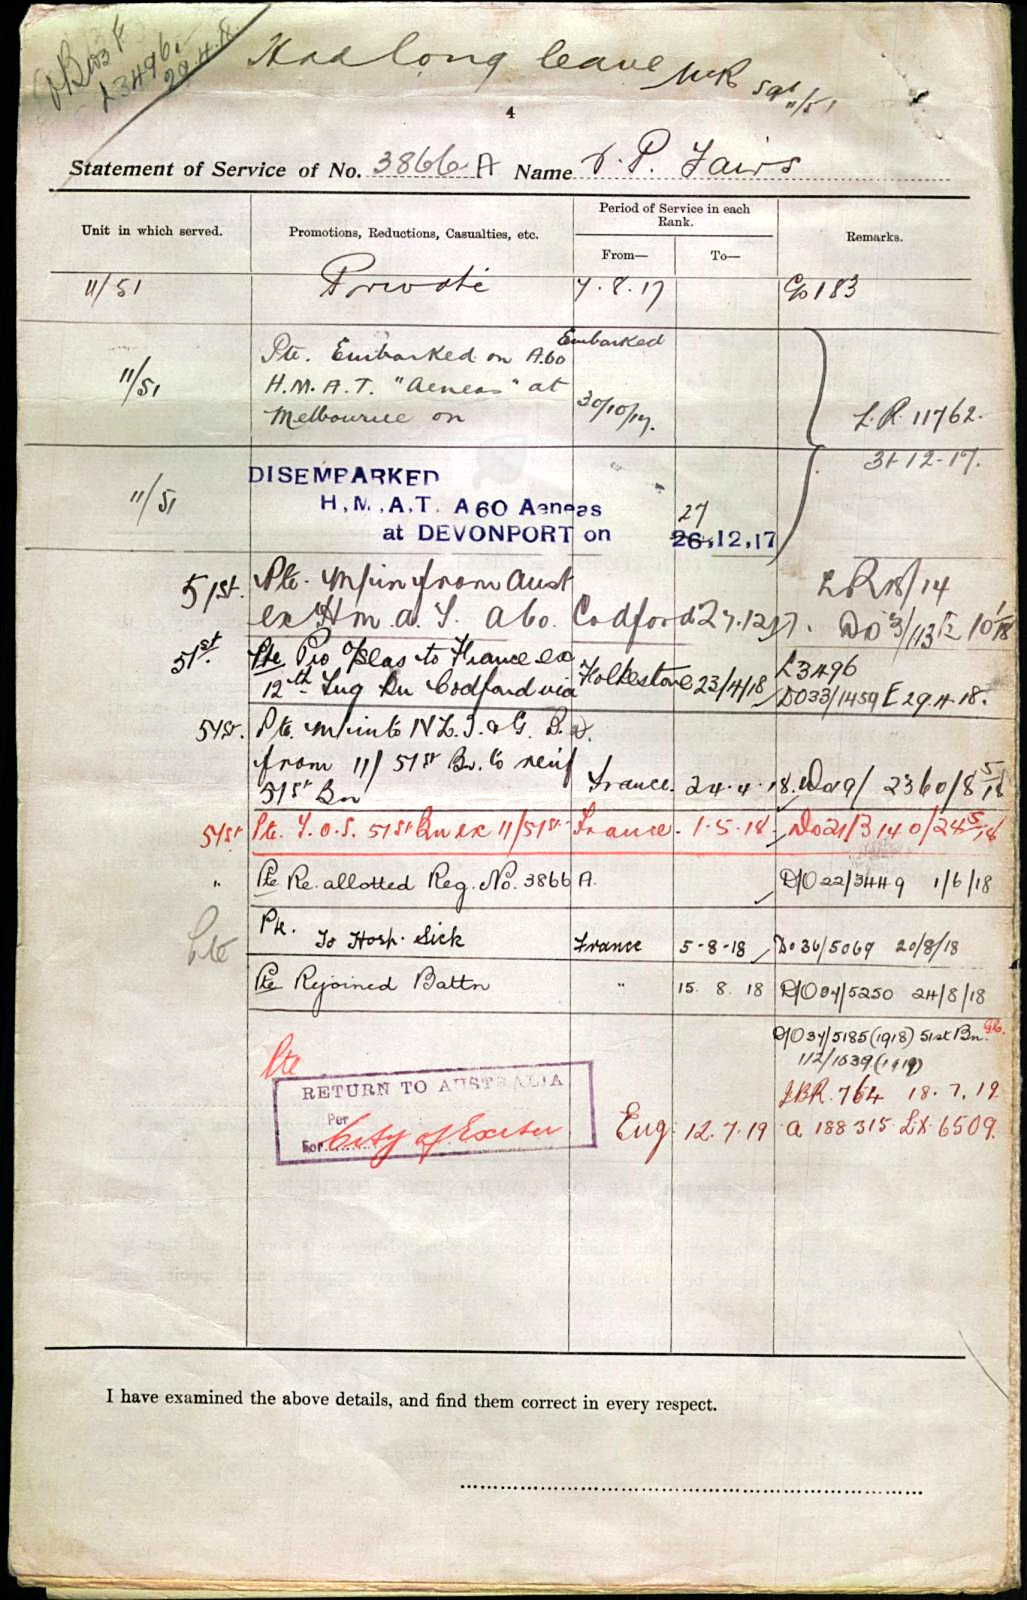 Had long leave
L3496
29.4.18
4
Statement of Service of No. 3866 A Name D. P. Fairs
Unit in which served. Promotions, Reductions, Casualties, etc. Period of Service in each Rank. Remarks.
From— To—
11/51 Private 7.8.17 183
11/51 Pte. Embarked on A60 Embarked
H.M.A.T. "Aeneas" at
Melbourne on 30/10/17. L.R. 11762.
31-12-17.
11/51 DISEMBARKED
H.M.A.T. A60 Aeneas
at DEVONPORT on 26.12.17
27
51st. Pte. M/in from Aust
ex H.M.A.T. A60. Codford 27.12.17.
51st. Pte Pro O/seas to France ex
12th Trg Bn Codford via Folkestone 23/4/18 L3496
DO33/1459 E 29.4.18.
51st. Pte. M/in to
from 11/51st Bn. to reinf
51st Bn France. 24.4.18. 2360/8 5/18
51st Pte. T.O.S. 51st Bn ex 11/51st France. 1.5.18. Do21/3140/24 5/18
" Pte Re.allotted Reg. No. 3866 A. D/O 22/3449 1/6/18
Pte.
To Hosp. Sick France 5-8-18 Do 36/5069 20/8/18
Pte Rejoined Battn " 15. 8. 18 5250 24/8/18
D/O 34/5185 (1918) 51st Bn.
112/1039 (1919)
Pte
RETURN TO AUSTRALIA
Per
For City of Exeter Eng. 12.7.19
764 18.7.19
A 188315 LX 6509.
I have examined the above details, and find them correct in every respect.